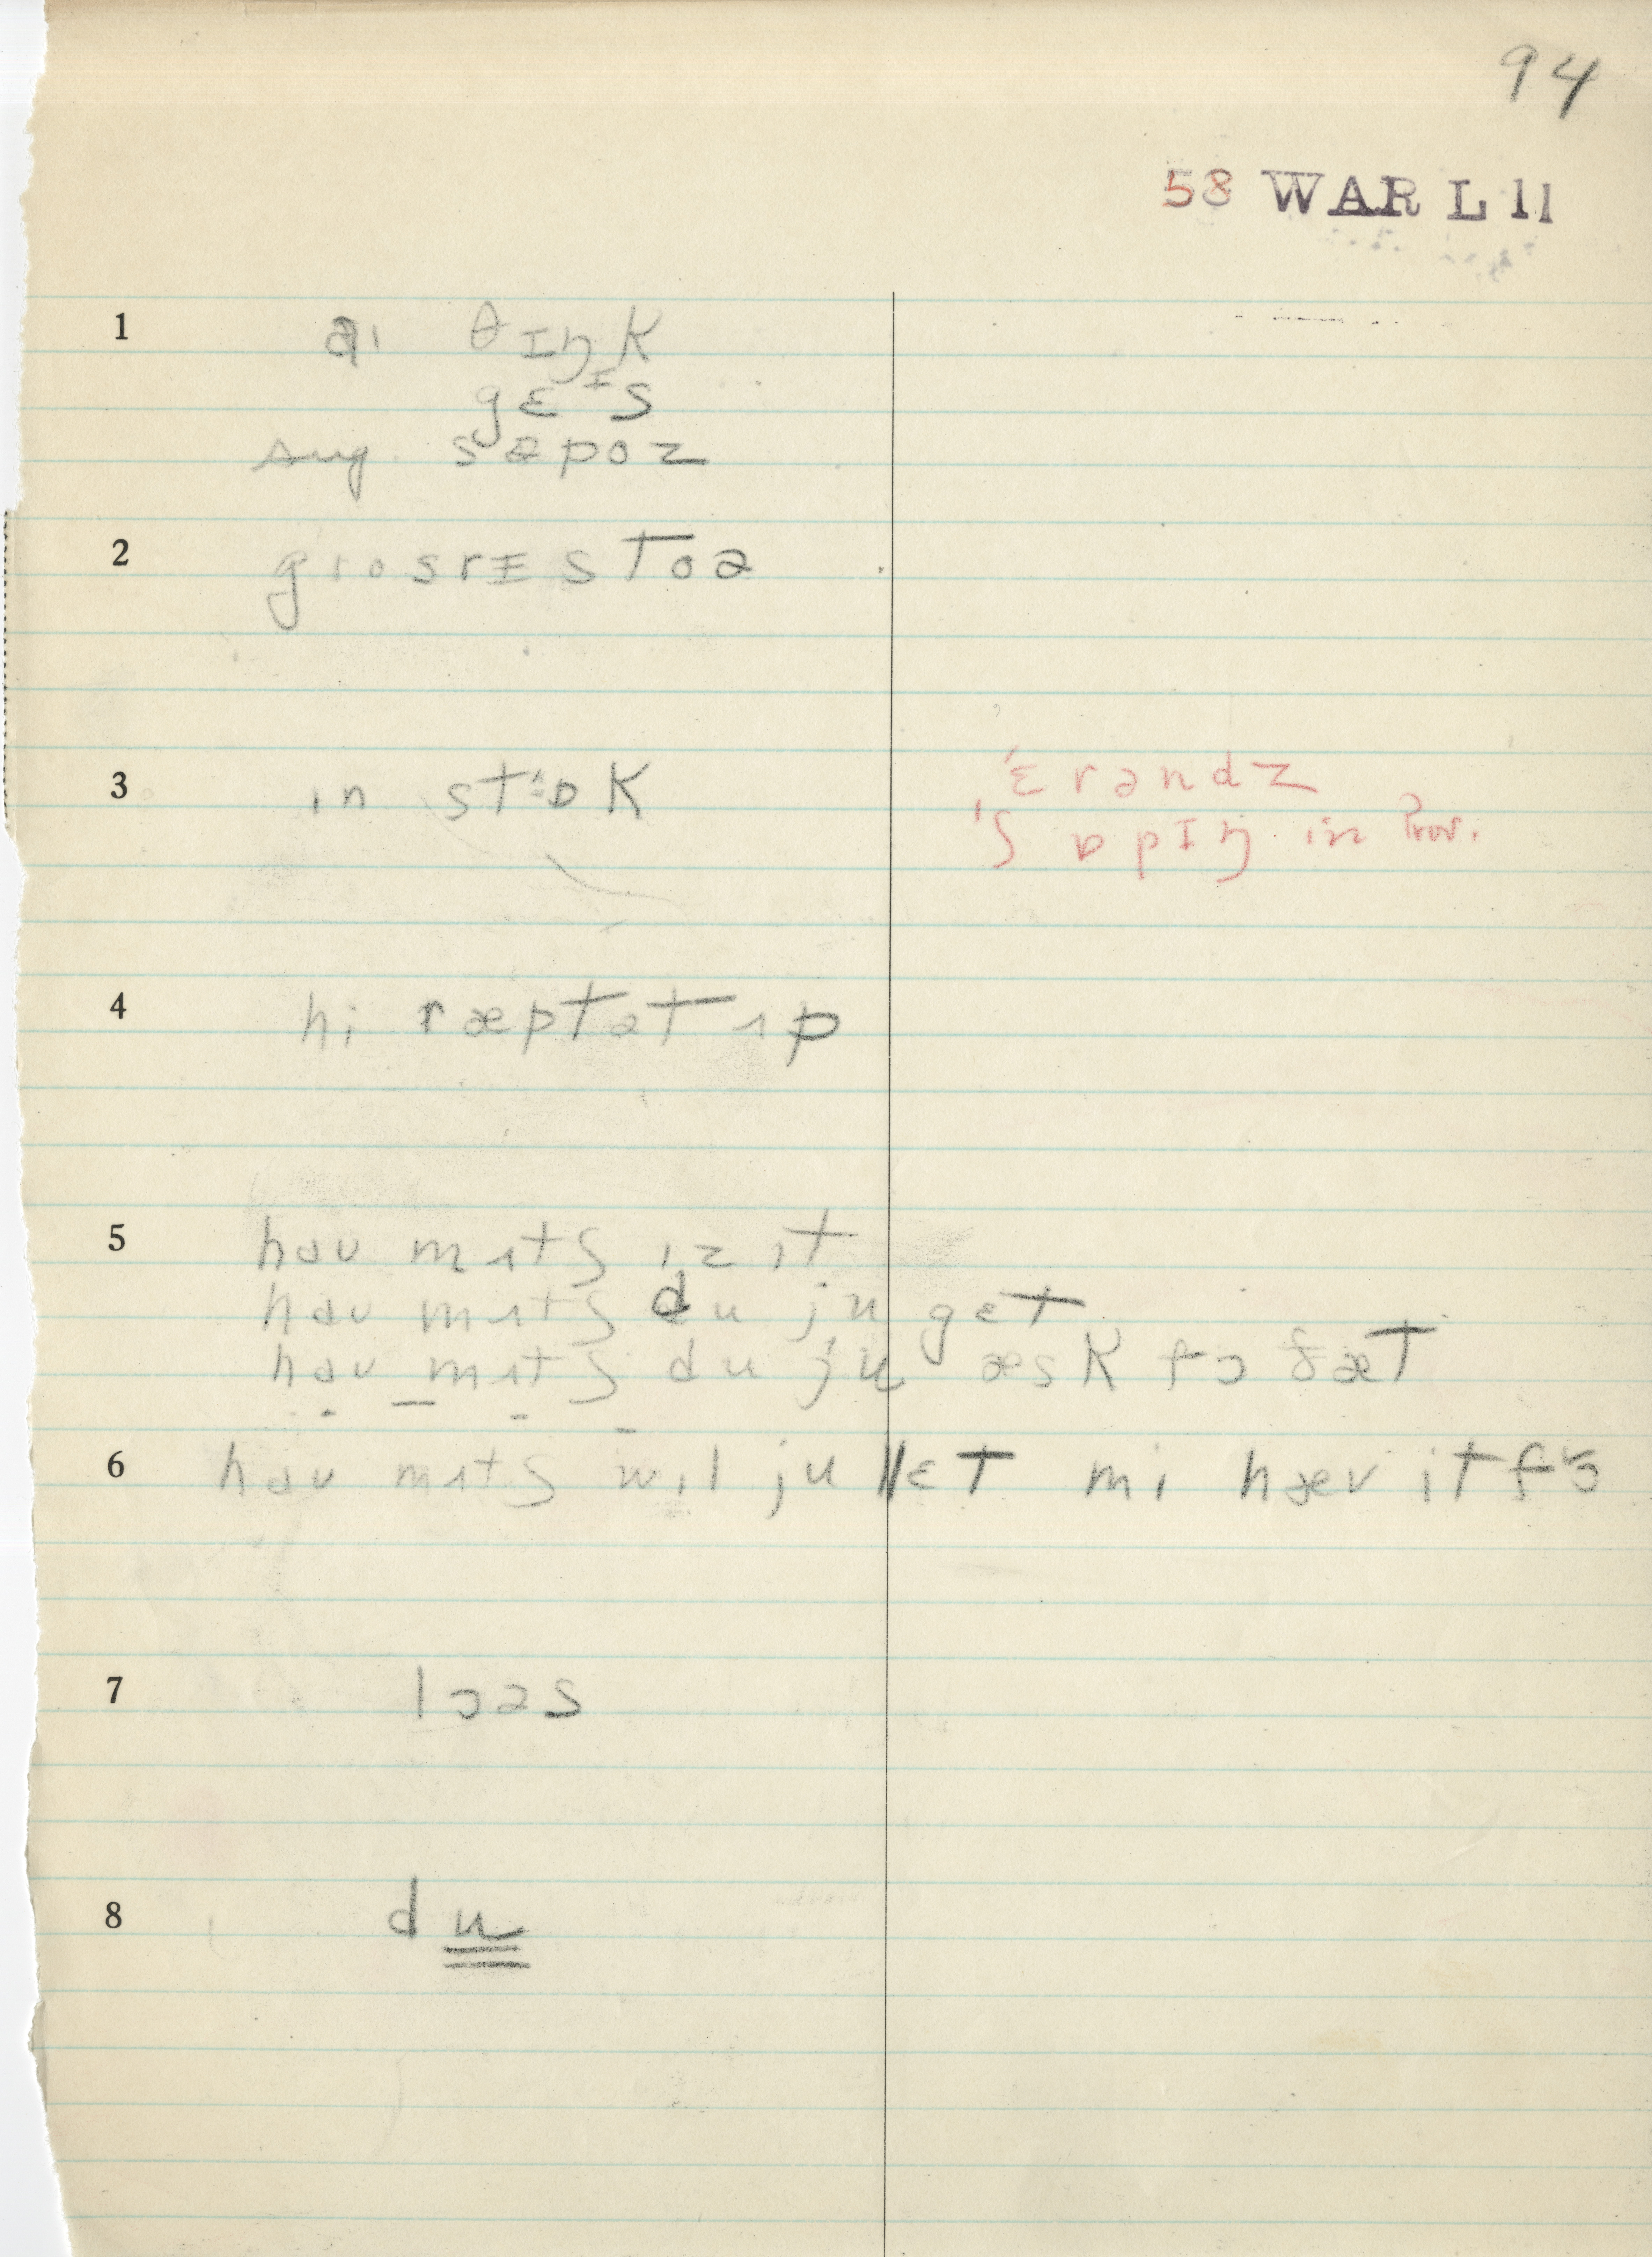 94
58 WAR L 11
1 aɪ θɪŋk
gɛᶦs
sug. səpoz
2 grosrɪ stoə
3 in stɒk 'ɛrəndz
'ʃɒpɪŋ in Prov.
4 hi ræpt ət ʌp
5 haʊ mʌtʃ ɪz ɪt
haʊ mʌtʃ du ju gɛt
haʊ mʌtʃ du ju æsk fɔ ðæt
6 haʊ mʌtʃ wɪl ju lɛt mi hæv it fɔ
7 lɔəs
8 du